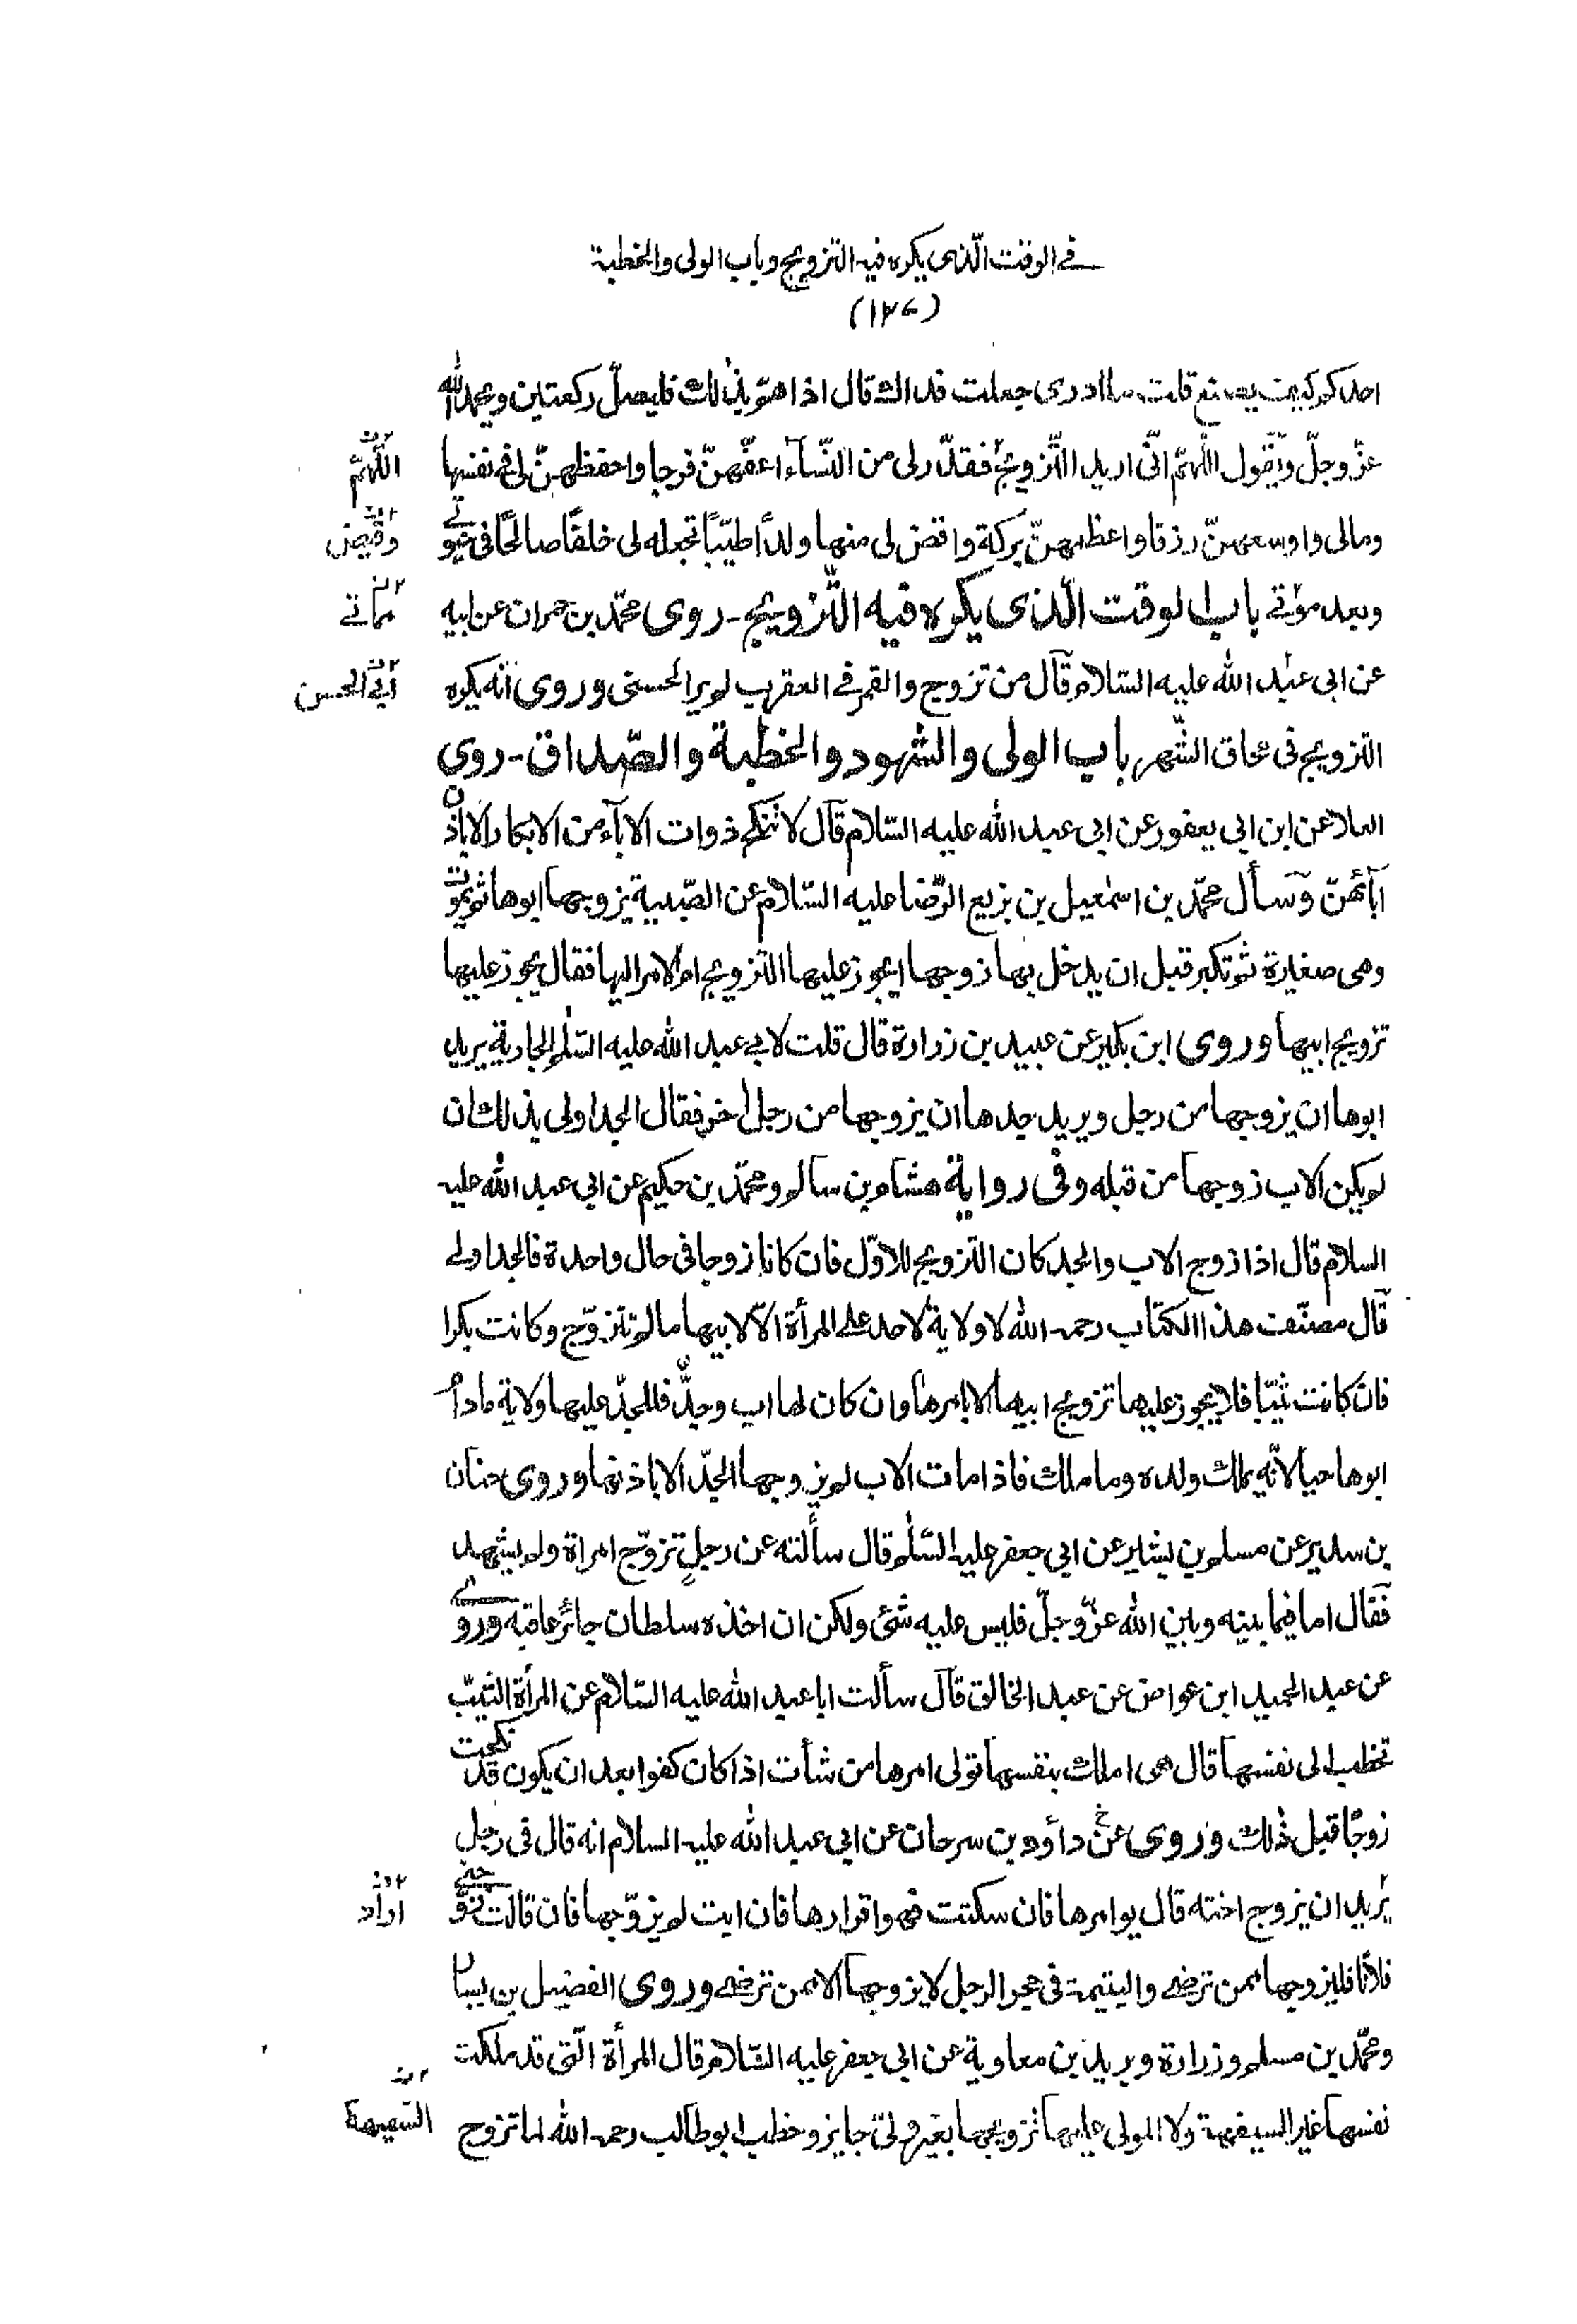 في الوقت الّذى يكره فيه التزويج وباب الولى والخطبة
(١٢٧)
احدكم كيف يصنع قلت ما ادرى جعلت فداك قال اذا همّ بذلك فليصلّ ركعتين ويحمد الله
عزّ وجلّ ويقول اللّهمّ انّى اريد التّزويج فقدّر لى من النّسآء اعفّهنّ فرجا واحفظهنّ لى في نفسها
اللّهمّ
ومالى واوسعهنّ رزقا واعظمهنّ بركة واقض لى منها ولدًا طيّبًا تجعله لى خلفًا صالحًا فى حيوتي
وقيض
وبعد موتي باب الوقت الّذى يكره فيه التّزويج - روى محمّد بن حمران عن ابيه
مماتي
عن ابى عبد الله عليه السّلام قال من تزوج والقمر في العقرب لم ير الحسنى وروى انّه يكره
ابي الحسن
التزويج فى محاق الشّهر باب الولى والشّهود والخطبة والصّداق - روى
العلا عن ابن ابى يعفور عن ابى عبد الله عليه السّلام قال لا تنكح ذوات الآبآء من الابكار الا باذن
آبائهنّ وسأل محمّد بن اسمٰعيل بن بزيع الرّضا عليه السّلام عن الصّبية يزوجها ابوها ثم يموت
وهى صغيرة ثم تكبر قبل ان يدخل بها زوجها ايجوز عليها التّزويج ام الامر اليها فقال يجوز عليها
تزويج ابيها وروى ابن بكير عن عبيد بن زرارة قال قلت لابي عبد الله عليه السّلٰم الجارية يريد
ابوها ان يزوجها من رجل ويريد جدها ان يزوجها من رجل اخر فقال الجد اولى بذلك ان
لم يكن الاب زوجها من قبله وفى رواية هشام بن سالم ومحمّد بن حكيم عن ابى عبد الله عليه
السلام قال اذا زوج الاب والجد كان التّزويج للاوّل فان كانا زوجا فى حال واحدة فالجد اولى
قال مصنّف هذا الكتاب رحمه الله لا ولاية لاحد على المرأة الّا لابيها ما لم تتزوّج وكانت بكرا
فان كانت ثيّبا فلا يجوز عليها تزويج ابيها الا بامرها وان كان لها اب وجدٌّ فللجدّ عليها ولاية ما دام
ابوها حيا لانّه يملك ولده وما ملك فاذا مات الاب لم يزوجها الجدّ الا باذنها وروى حنان
بن سدير عن مسلم بن بشير عن ابى جعفر عليه السّلٰم قال سألته عن رجلٍ تزوّج امراة ولم يشهد
فقال اما فيما بينه وبين الله عزّ وجلّ فليس عليه شئ ولكن ان اخذه سلطان جائر عاقبه وروى
عن عبد الحميد ابن عواض عن عبد الخالق قال سألت ابا عبد الله عليه السّلام عن المرأة الثّيّب
تخطب الى نفسها قال هى املك بنفسها تولى امرها من شأت اذا كان كفوا بعد ان يكون قد نكحت
زوجًا قبل ذٰلك وروى عن داؤد بن سرحان عن ابى عبد الله عليه السلام انه قال فى رجل
يريد ان يزوج اخته قال يوامرها فان سكتت فهو اقرارها فان ابت لم يزوّجها فان قالت زوّجني
اراد
فلانا فليزوجها ممن ترضى واليتيمة فى حجر الرجل لا يزوجها الا ممن ترضى وروى الفضيل بن يسار
ومحمّد بن مسلم وزرارة وبريد بن معاوية عن ابى جعفر عليه السّلام قال المرأة الّتى قد ملكت
نفسها غير السفيهة ولا المولى عليها تزويجها بغير ولىّ جايز وخطب ابو طالب رحمه الله لما تزوج
السّفيهة